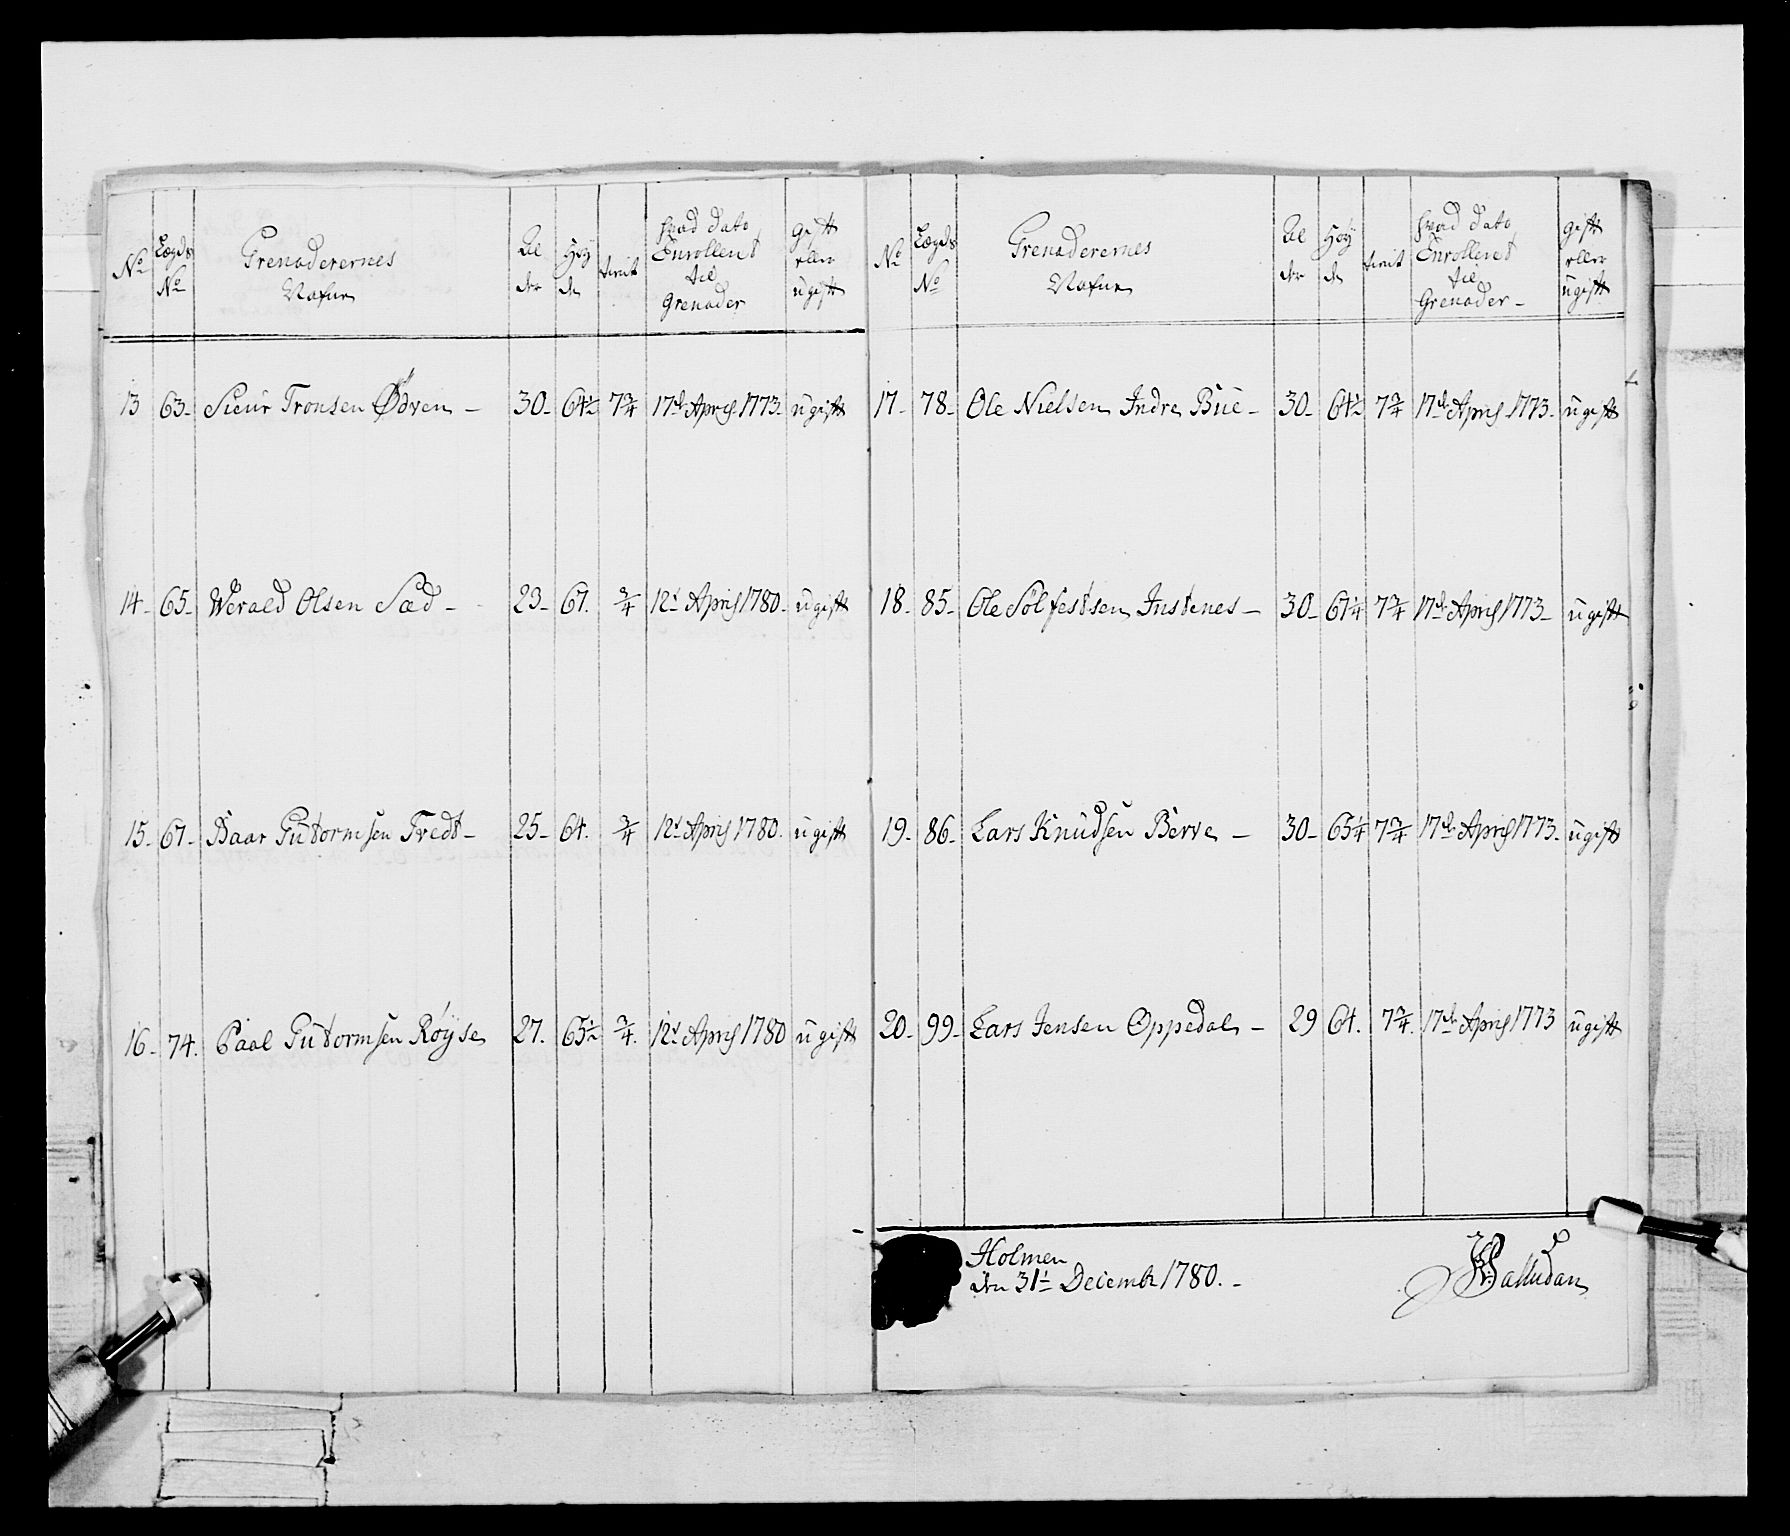 No
Lægds No
Grenaderernes Nafne
Al der
Høy de
tient
hvad dato Enrollerit til Grenader
gift eller ugift
13 63- Siur Tronsen Ødven - 30- 64½ 7¾ 17de April 1773- ugift
14- 65- Werald Olsen Sæd - 23- 67. ¾ 12te April 1780- ugift
15- 67- Baar Gutormsen Tredt - 25- 64. ¾ 12te April 1780. ugift
16- 74. Paal Gutormsen Røyse 27. 65½ ¾. 12te April 1780 ugift
No
Lægds No
Grenaderernes Nafne
Al der
Høy de
tient
hvad dato Enrolleret til Grenader -
gift eller ugift
17- 78- Ole Nielsen Indre Bue - 30- 64½ 7¾ 17de April 1773- ugift
18- 85- Ole Sølfestsen Instenes - 30- 67¼ 7¾ 17de April 1773- ugift
19- 86- Lars Knudsen Berve - 30- 65¼ 7¾ 17de April 1773- ugift
20- 99- Lars Jensen Oppedal - 29 64. 7¾. 17de April 1773 ugift
Holmen
den 31te Decembr 1780. -
Palludan